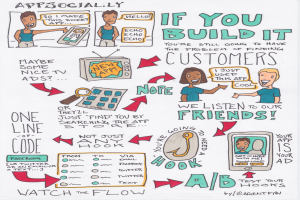 APPSOCIALLY
SO I MADE
THIS
APP...
HELLO
ECHO
ECHO
ECHO
IF YOU
BUILD IT
YOU'RE STILL GOING TO HAVE
THE PROBLEM OF FINDING
CUSTOMERS
MAYBE
SOME
NICE TV
ADS?...
NEW
APP!
NOPE
I JUST
USED
THIS APP
COOL
OR
THEY'LL
JUST "FIND" YOU BY
SEARCHING THE APP
STORE...
WE LISTEN TO OUR
FRIENDS!
ONE
LINE
OF
CODE
NOT JUST
ANY
HOOK
YOU'RE
GOING TO
NEED A
HOOK
THIS
IS
YOUR
AD
FACEBOOK
(OR TWITTER
OR AN EMAIL
OR TEXT...)
FROM
TO
VIA
EMAIL
FACEBOOK
TWITTER
TEXT
WATCH THE FLOW
A/B
TEST YOUR
HOOKS